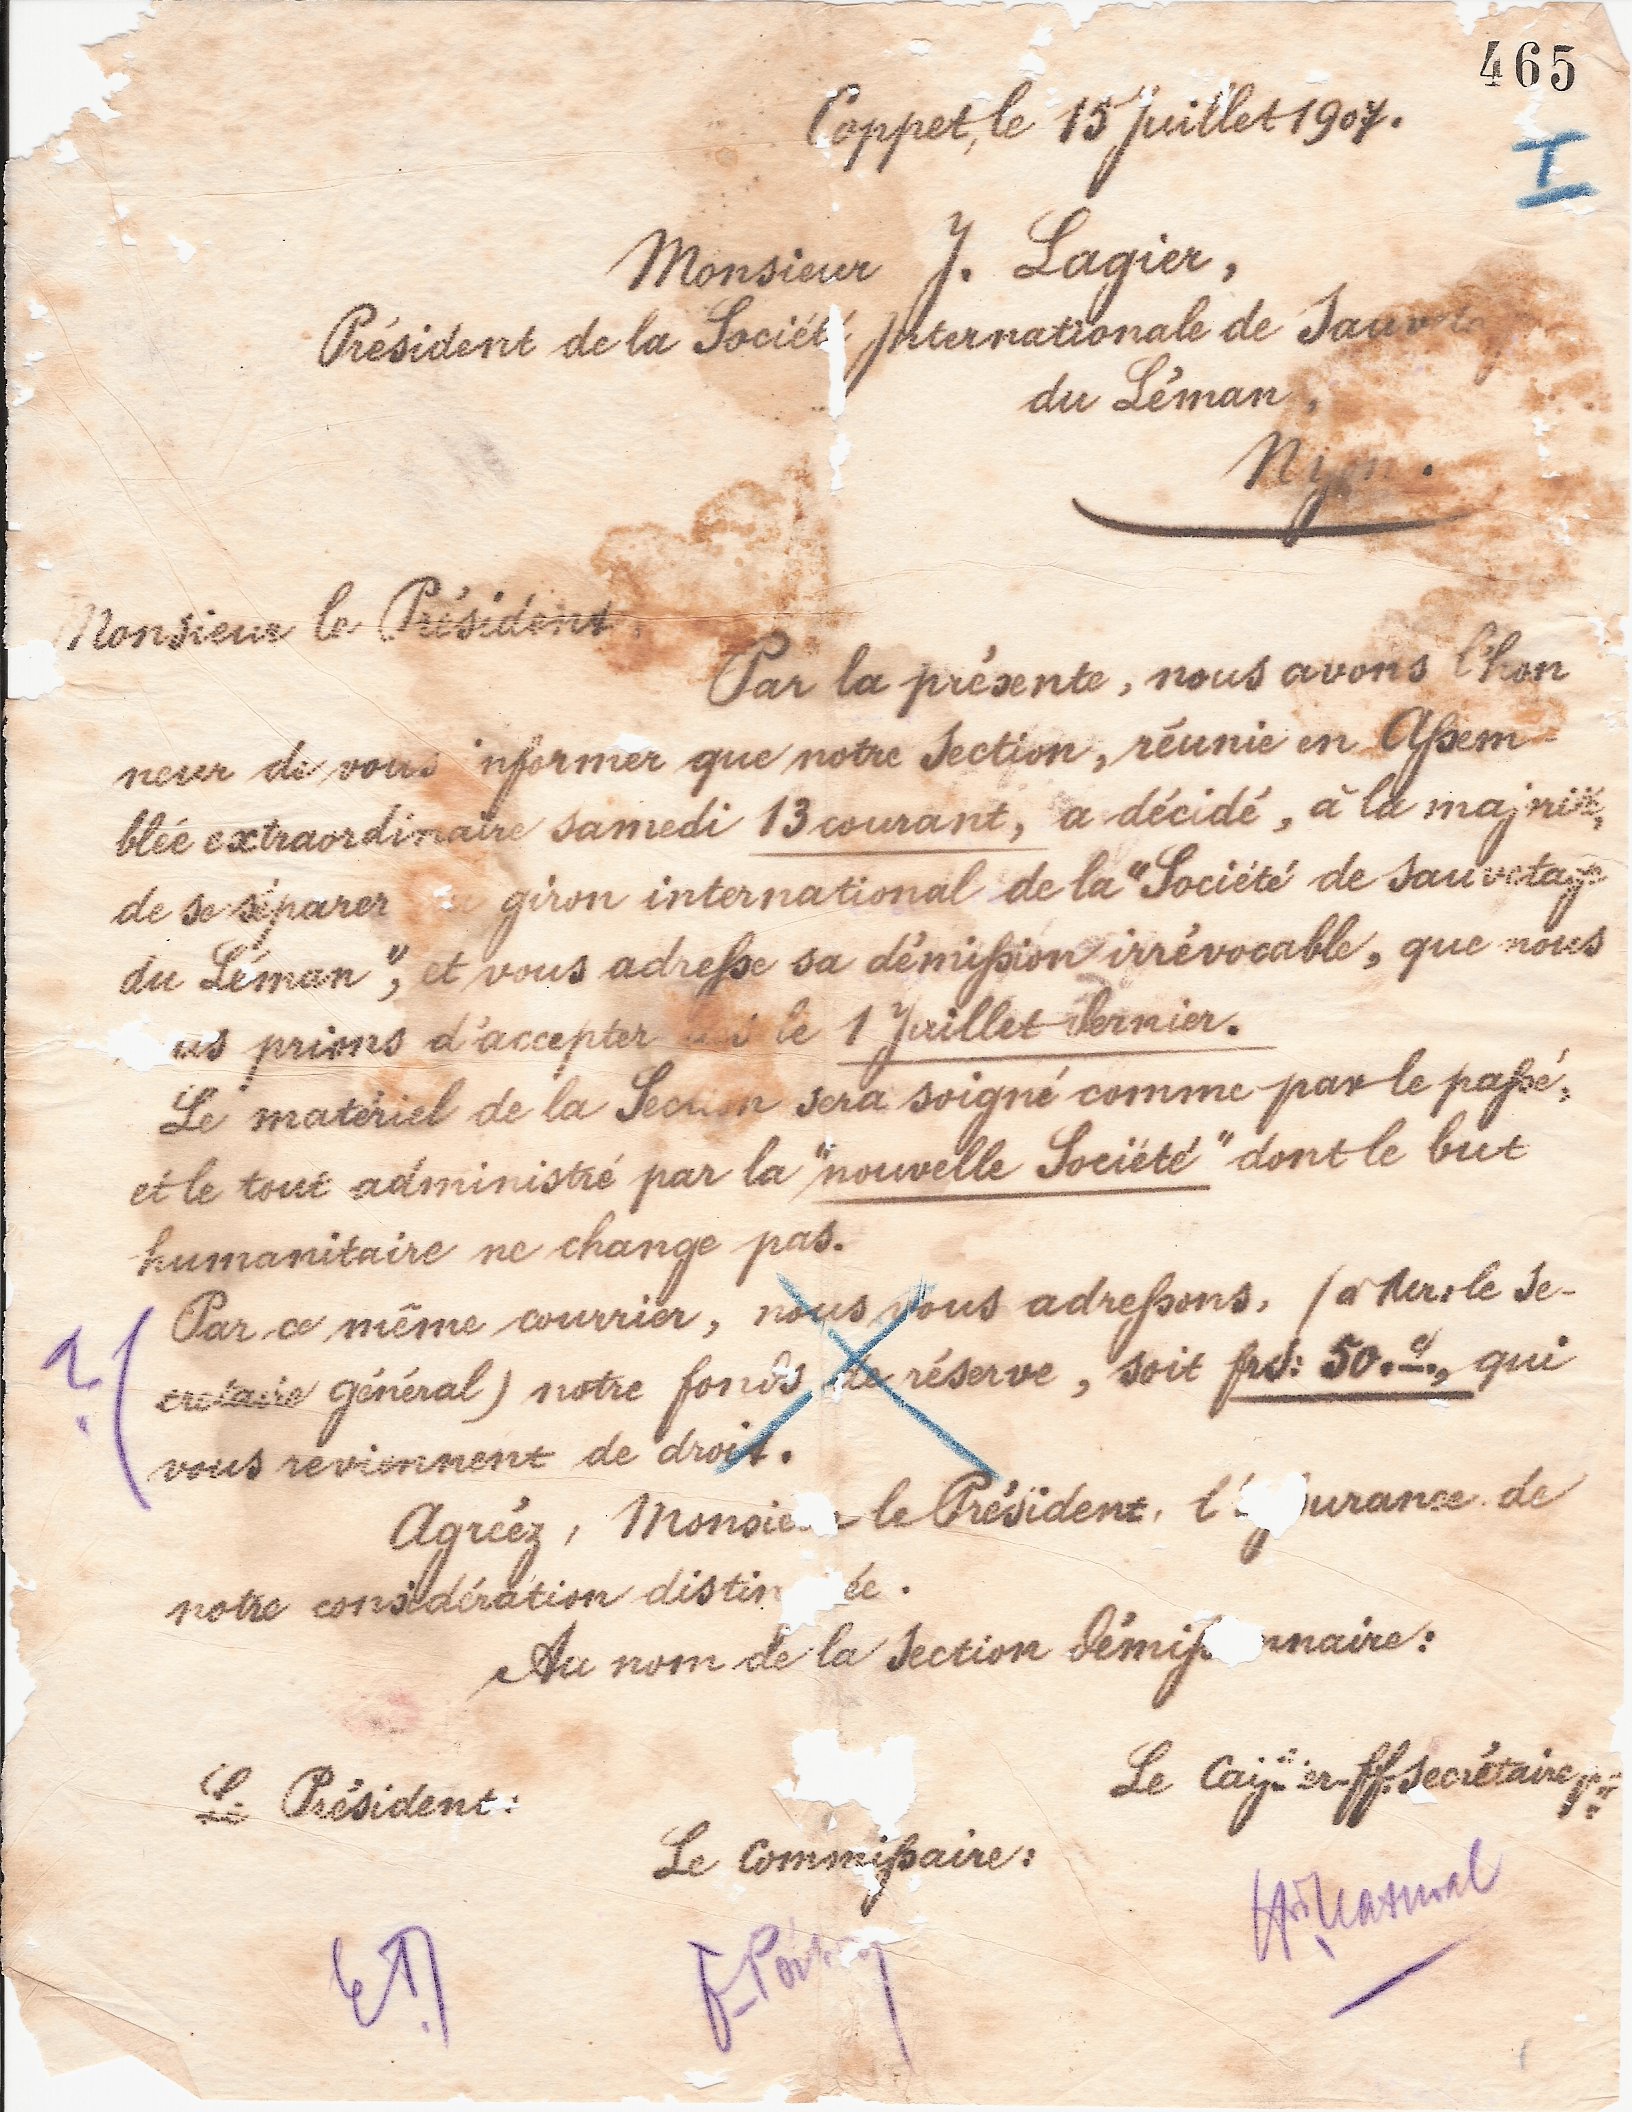 465
Coppet, le 15 Juillet 1907.
I
Monsieur J. Lagier,
Président de la Société Internationale de Sauveta
du Léman,
Nyon.
Monsieur le Président,
Par la présente, nous avons l'hon
neur de vous informer que notre Section, réunie en Assem-
blée extraordinaire samedi 13 courant, a décidé, à la majrité,
de se séparer giron international de la "Société de Sauvetage
du Léman", et vous adresse sa démission irrévocable, que nous
us prions d'accepter le 1 Juillet dernier.
Le matériel de la Section sera soigné comme par le passé,
et le tout administré par la "nouvelle Société" dont le but
humanitaire ne change pas.
Par ce même courrier, nous vous adressons, (à Mr: le Se-
crétaire général) notre fonds de réserve, soit frs: 50.-, qui
vous reviennent de droit.
Agréez, Monsieur le Président, l'assurance de
notre considération distin ée.
Au nom de la Section démissionnaire:
Le Président:
Le ff. Secrétaire
Le Commissaire: